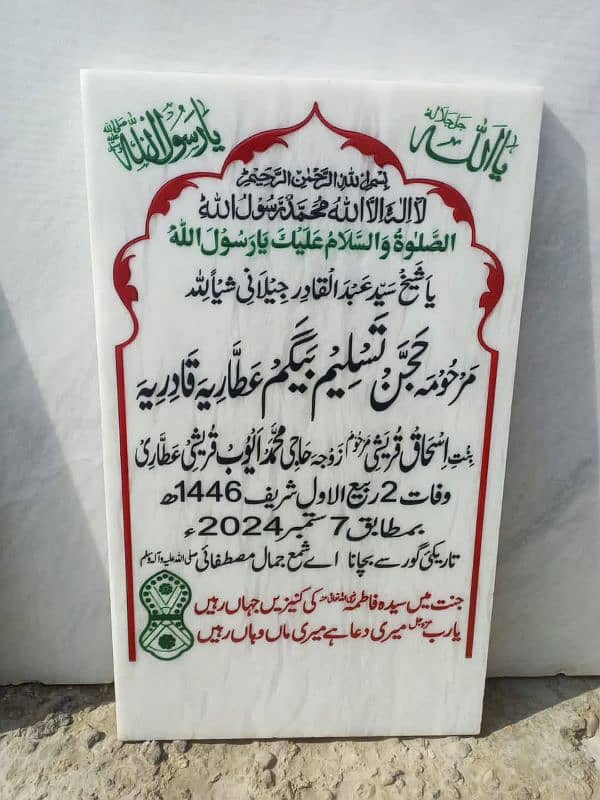 یا اللہ جل جلالہ
یا رسول اللہ ﷺ
بِسْمِ اللہِ الرَّحْمٰنِ الرَّحِیْمِ
لَا اِلٰہَ اِلَّا اللہُ مُحَمَّدٌ رَّسُوْلُ اللہِ
الصَّلٰوۃُ وَالسَّلَامُ عَلَیْكَ یَا رَسُوْلَ اللہِ
یا شَیْخ سَیِّد عَبْدَ الْقَادِر جِیْلَانِی شَیْأً لِلّٰہ
مَرحُومَہ حَجَّن تَسلِیم بَیگَم عَطَّارِیَہ قَادِرِیَہ
بِنتِ اِسْحَاق قُرَیشِی مرحوم زَوجَہ حَاجِی مُحَمَّد اَیُّوب قُرَیشِی عَطَّارِی
وفات 2 ربیع الاول شریف 1446ھ
بمطابق 7 ستمبر 2024ء
تاریکیٔ گور سے بچانا اے شمع جمال مصطفائی صلی اللہ علیہ وآلہ وسلم
جنت میں سیدہ فاطمہ رضی اللہ تعالیٰ عنہا کی کنیزیں جہاں رہیں
یارب عزوجل میری دعا ہے میری ماں وہاں رہیں